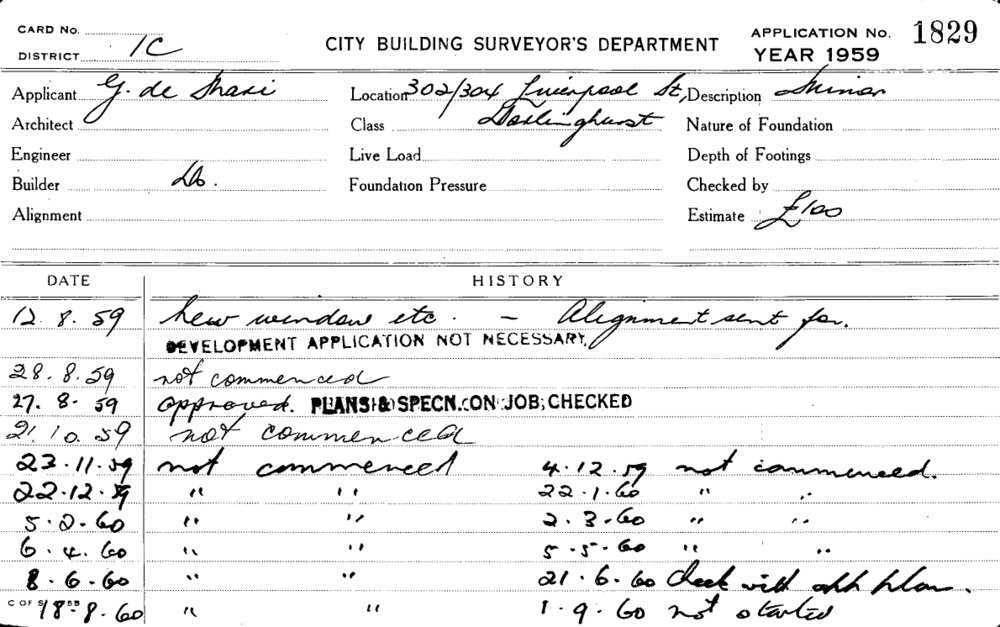 CARD No.
DISTRICT 1C
CITY BUILDING SURVEYOR'S DEPARTMENT
APPLICATION No. 1829
YEAR 1959
Applicant G. de Location 302/304 Liverpool St, Description Minor
Architect Class Darlinghurst Nature of Foundation
Engineer Live Load Depth of Footings
Builder Do. Foundation Pressure Checked by
Alignment Estimate £100
DATE HISTORY
12. 8. 59 New window etc. - Alignment sent for.
DEVELOPMENT APPLICATION NOT NECESSARY.
28. 8. 59 not commenced
27. 8. 59 approved. PLANS & SPECN. ON JOB, CHECKED
21. 10. 59 not commenced
23. 11. 59 not commenced 4. 12. 59 not commenced.
22. 12. 59 " " 22. 1. 60 " "
5. 2. 60 " " 2. 3. 60 " "
6. 4. 60 " " 5. 5. 60 " "
8. 6. 60 " " 21. 6. 60 Check with plan.
C OF S 18. 8. 60 " " 1. 9. 60 not started